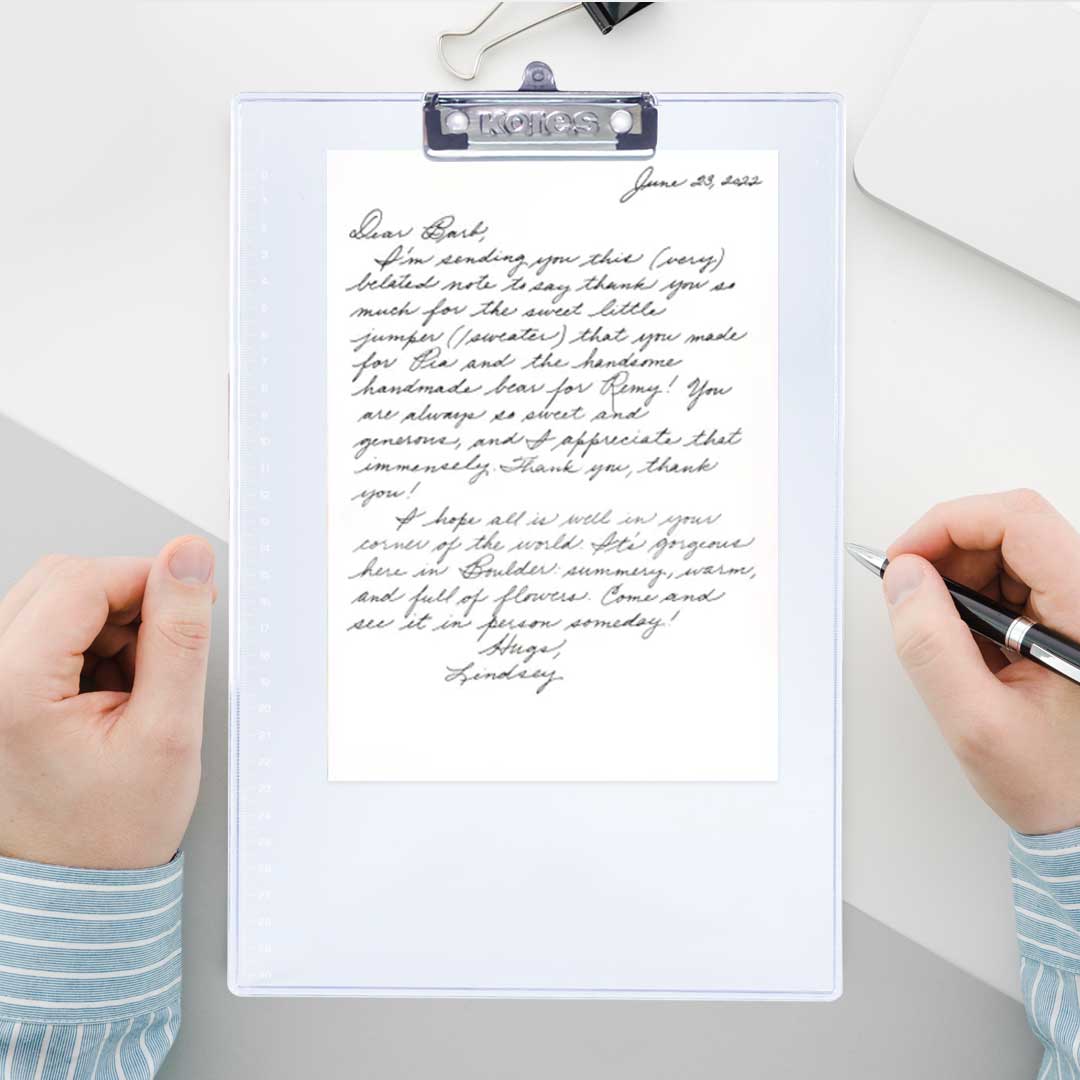 Kores
June 23, 2022
Dear Barb,
I'm sending you this (very)
belated note to say thank you so
much for the sweet little
jumper (/sweater) that you made
for Pia and the handsome
handmade bear for Remy! You
are always so sweet and
generous, and I appreciate that
immensely. Thank you, thank
you!
I hope all is well in your
corner of the world. It's gorgeous
here in Boulder: summery, warm,
and full of flowers. Come and
see it in person someday!
Hugs,
Lindsey